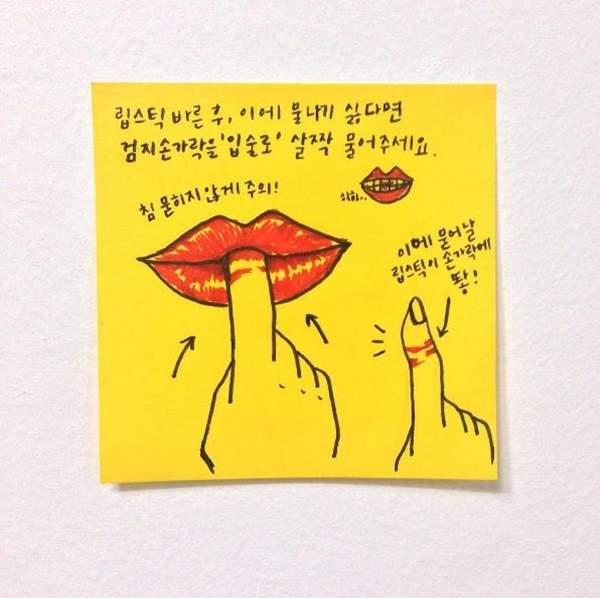 립스틱 바른 후, 이에 물나기 싫다면
검지손가락을 '입술로' 살짝 물어주세요.
침 묻히지 않게 주의!
싀하..
이에 묻어날
립스틱이 손가락에
똻!